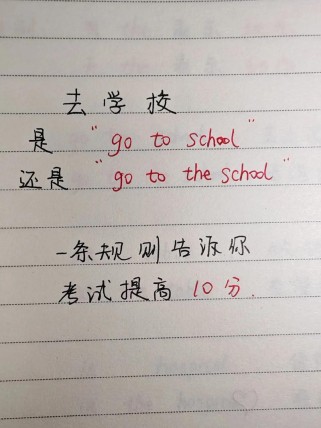 去学校
是 "go to school"
还是 "go to the school"
一条规则告诉你
考试提高 10 分.